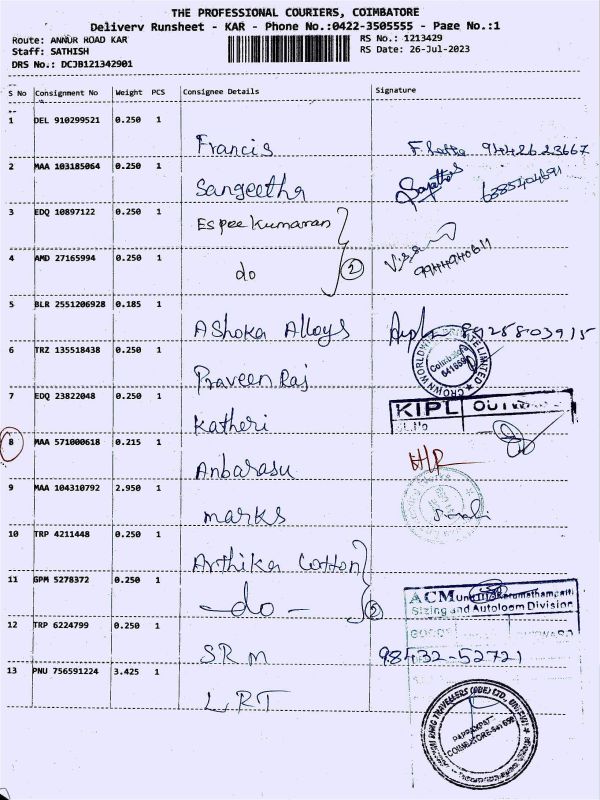 THE PROFESSIONAL COURIERS, COIMBATORE
Delivery Runsheet - KAR - Phone No.:0422-3505555 - Page No.:1
Route: ANNUR ROAD KAR
RS No.: 1213429
Staff: SATHISH
RS Date: 26-Jul-2023
DRS No.: DCJB121342901
S No Consignment No Weight PCS Consignee Details Signature
1 DEL 910299521 0.250 1
Francis 9442623667
2 MAA 103185064 0.250 1
Sangeetha 6385404691
3 EDQ 10897122 0.250 1
Espee kumaran
4 AMD 27165994 0.250 1
do 2 9944940611
5 BLR 2551206928 0.185 1
Ashoka Alloys 8925803915
6 TRZ 135518438 0.250 1
Praveen Raj
CROWN WORLDWIDE PRIVATE LIMITED
Coimbatore
7 EDQ 23822048 0.250 1
Katheri
KIPL
8 MAA 571000618 0.215 1
Anbarasu
9 MAA 104310792 2.950 1
marks
10 TRP 4211448 0.250 1
Arthika Cotton
11 GPM 5278372 0.250 1
-do-
ACM Unit
Sizing and Autoloom Division
12 TRP 6224799 0.250 1
SRM 98432-52721
13 PNU 756591224 3.425 1
LRT